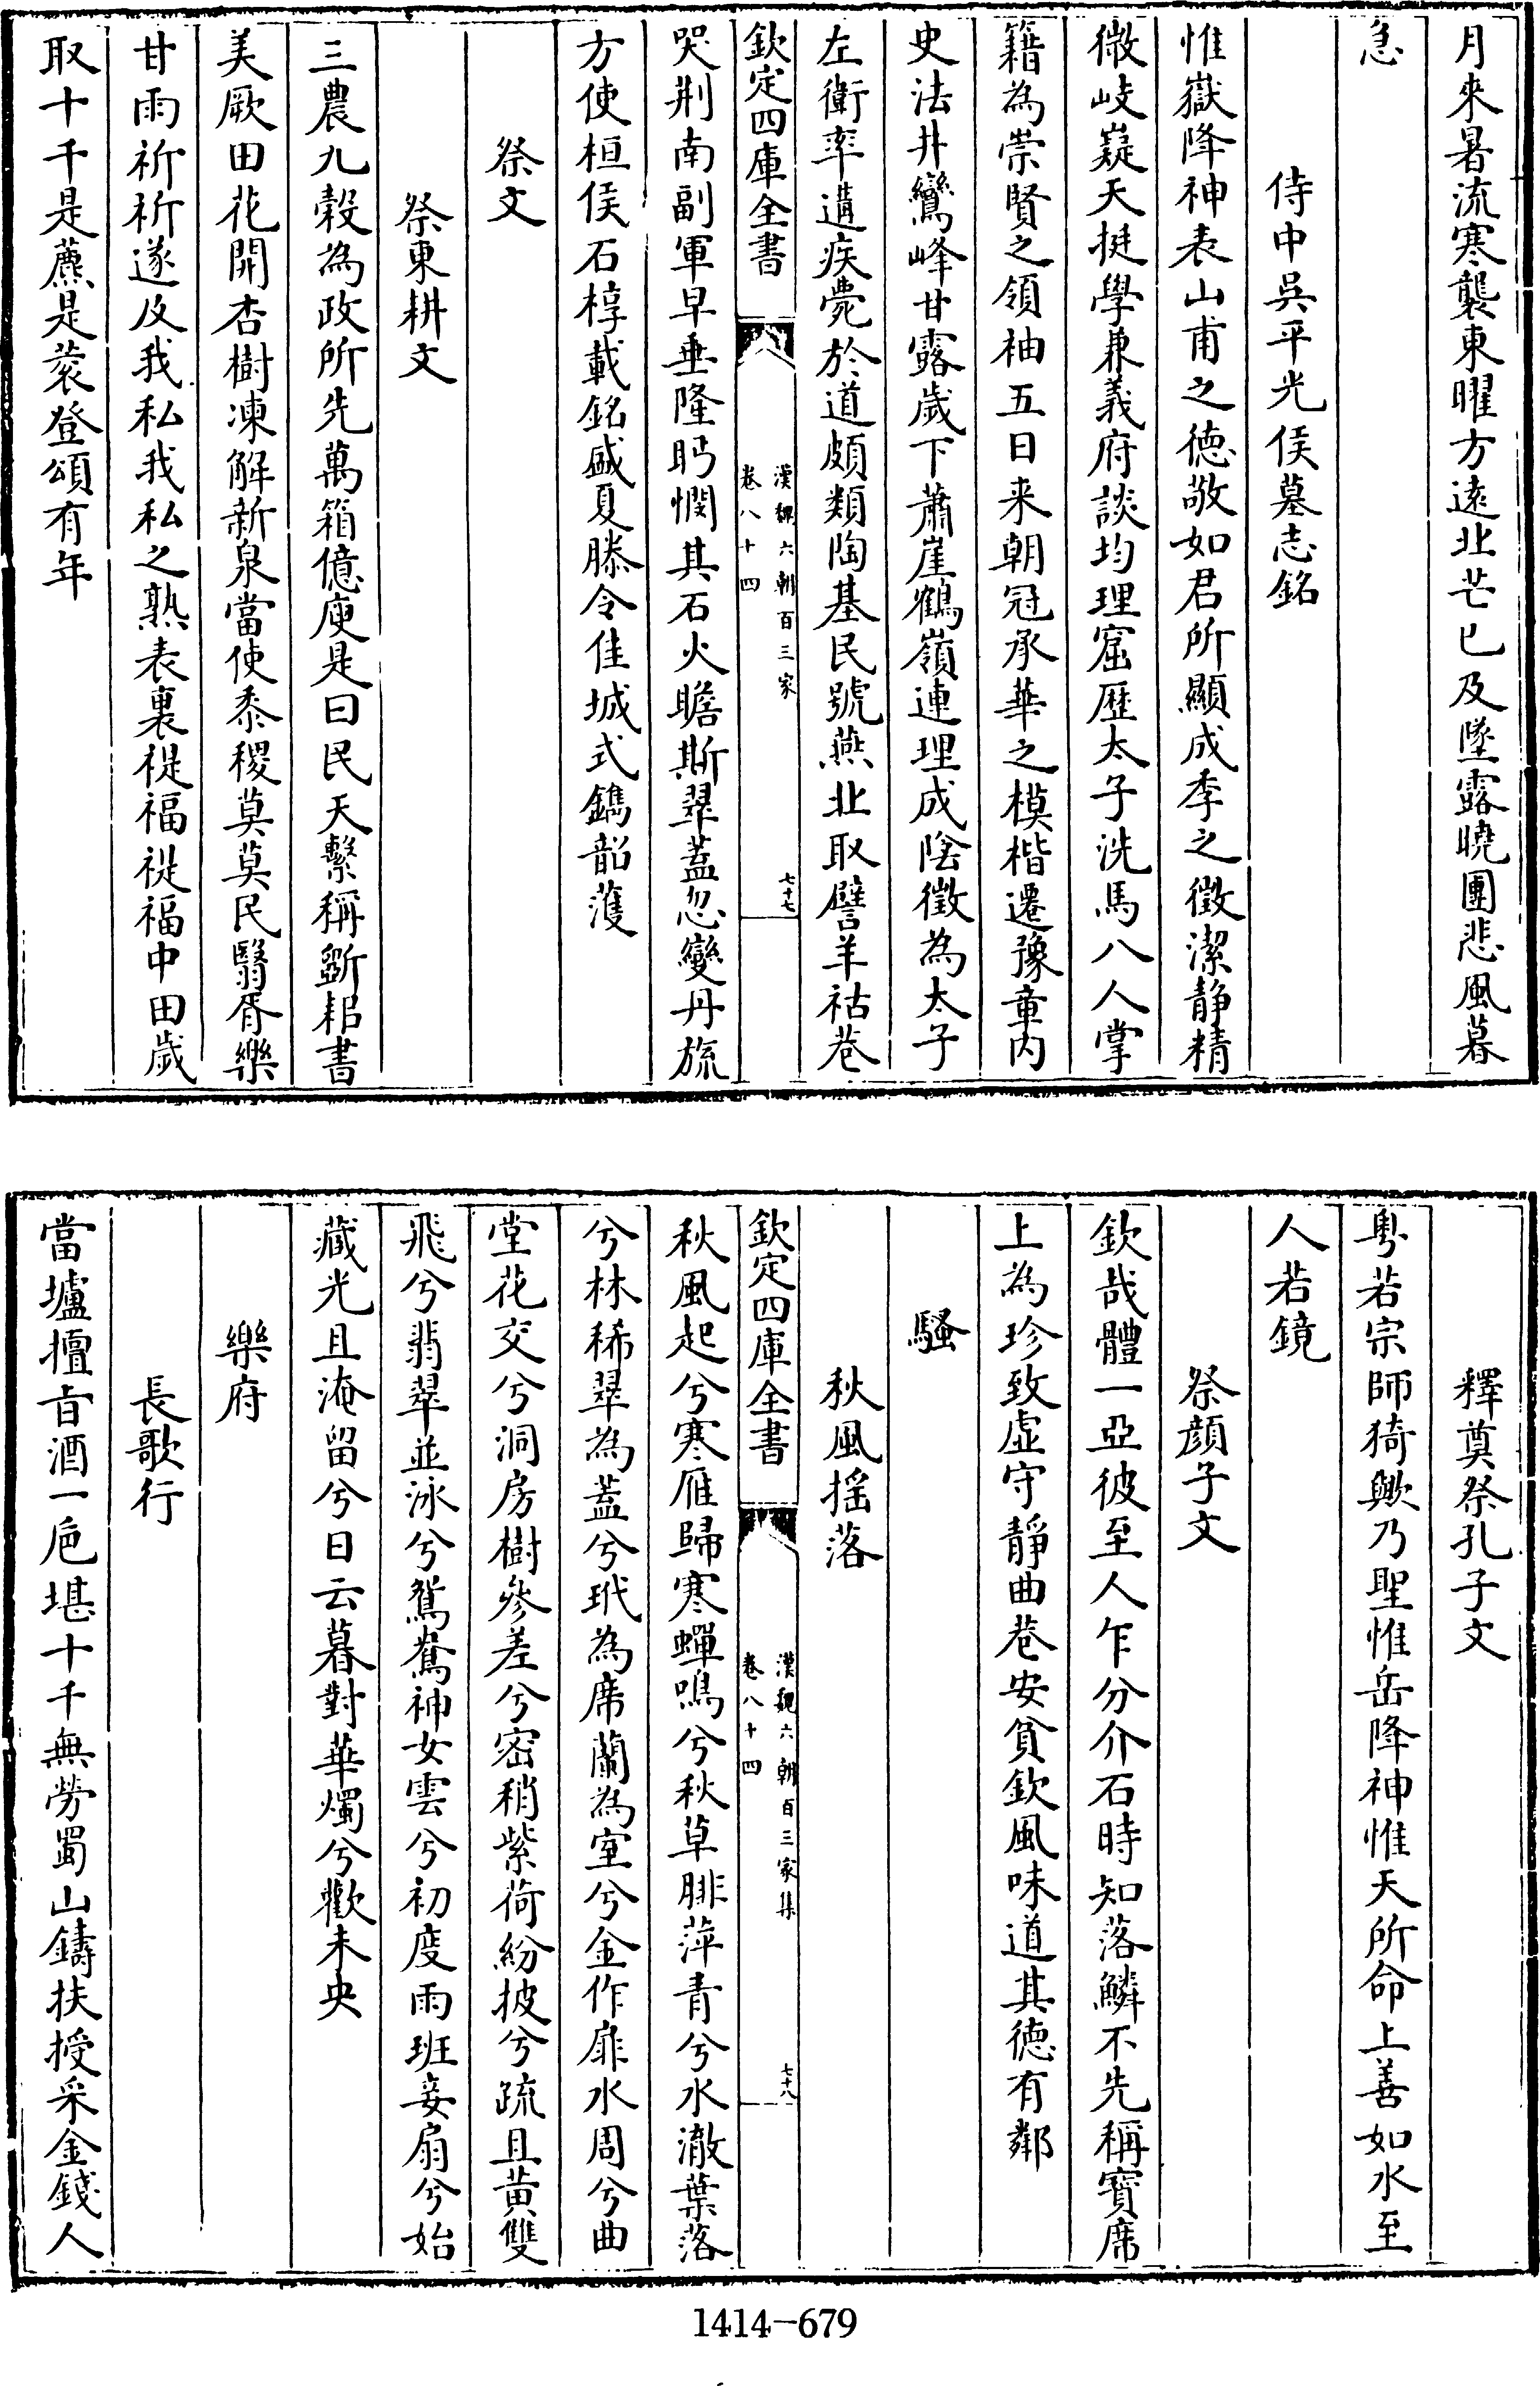 月來暑流寒襲東曜方遠北芒已及墜露曉團悲風暮
急
侍中吳平光侯墓志銘
惟嶽降神表山甫之德敬如君所顯成季之徵潔靜精
微岐嶷天挺學兼義府談均理窟歷太子洗馬八人掌
籍為崇賢之領袖五日来朝冠承華之模楷遷豫章内
史法井鸞峰甘露歲下蕭崖鶴嶺連理成陰徵為太子
左衛率遘疾薨於道頗類陶基民號燕北取譬羊祜巷
欽定四庫全書
漢魏六朝百三家
卷八十四
七十七
哭荆南副軍早垂隆眄憫其石火瞻斯翠蓋忽變丹旒
方使桓侯石椁載銘盛夏滕令佳城式鐫韶濩
祭文
祭東耕文
三農九榖為政所先萬箱億庾是曰民天繫稱斵耜書
美厥田花開杏樹凍解新泉當使黍稷莫莫民翳胥樂
甘雨祈祈遂及我私我私之熟表裏禔福禔福中田歲
取十千是藨是蓘登頌有年
釋奠祭孔子文
粤若宗師猗歟乃聖惟岳降神惟天所命上善如水至
人若鏡
祭顔子文
欽哉體一亞彼至人乍分介石時知落鱗不先稱寶席
上為珍致虚守靜曲巷安貧欽風味道其德有鄰
騷
秋風揺落
欽定四庫全書
漢魏六朝百三家集
卷八十四
七十八
秋風起兮寒雁歸寒蟬鳴兮秋草腓萍青兮水澈葉落
兮林稀翠為蓋兮玳為席蘭為室兮金作扉水周兮曲
堂花交兮洞房樹參差兮密稍紫荷紛披兮疏且黄雙
飛兮翡翠並泳兮鴛鴦神女雲兮初度雨班妾扇兮始
藏光且淹留兮日云暮對華燭兮歡未央
樂府
長歌行
當壚擅旨酒一卮堪十千無勞蜀山鑄扶授采金錢人
1414-679